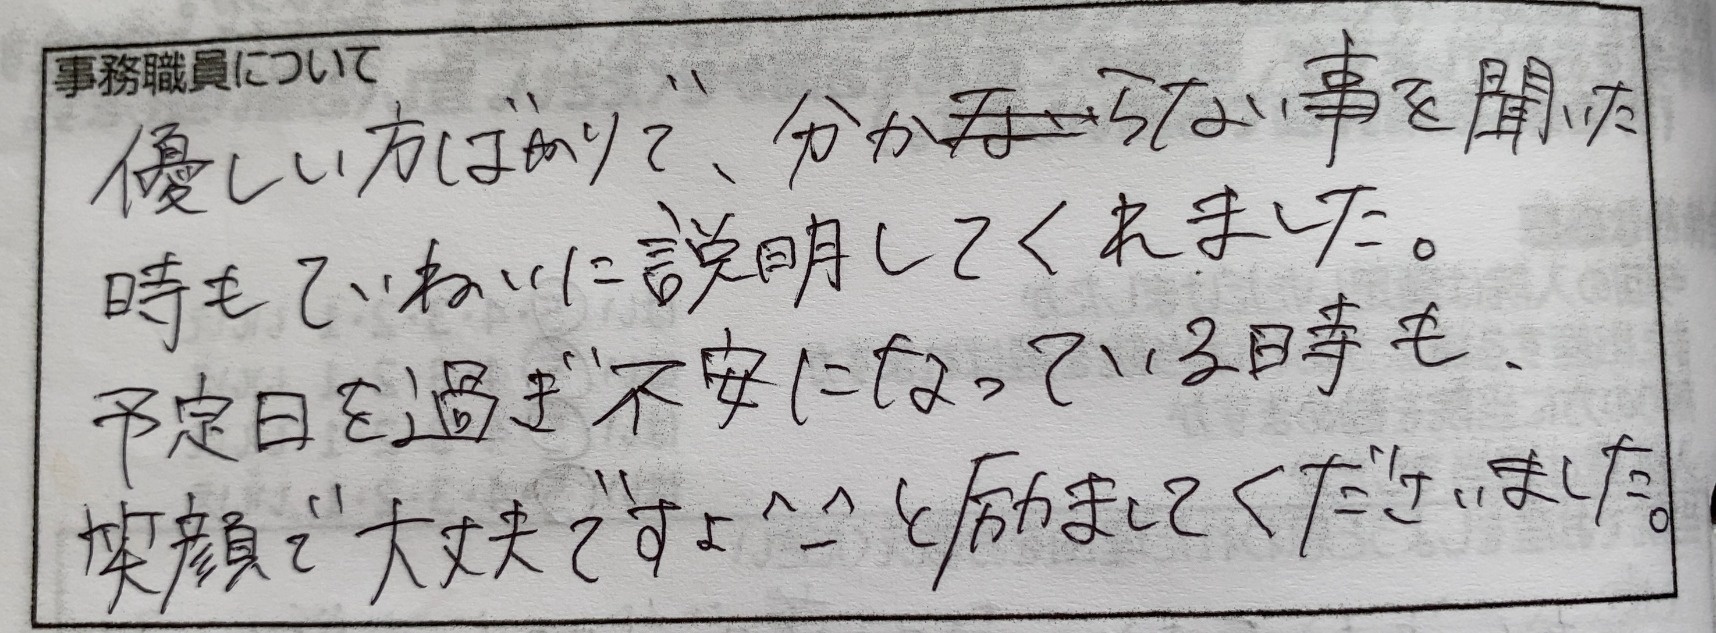 事務職員について
優しい方ばかりで、分からない事を聞いた
時もていねいに説明してくれました。
予定日を過ぎ不安になっている時も、
笑顔で大丈夫ですよ^_^と励ましてくださいました。